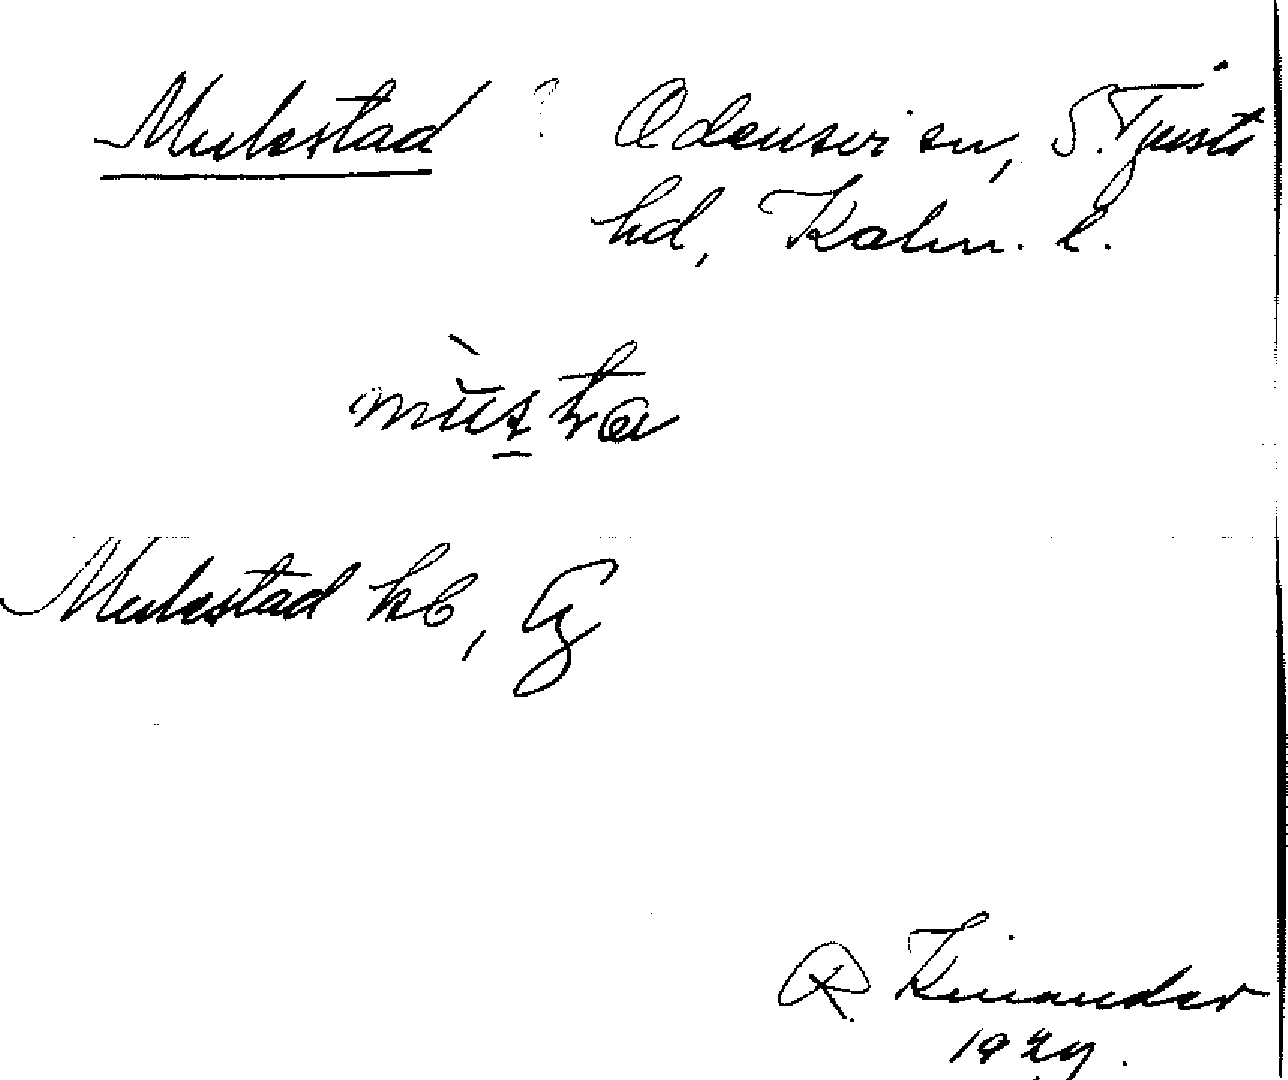 Mulestad ? Odensvi sn, S. Tjusts
hd, Kalm. l.
mùsta
Mulestad hb, Eg
R Kinander
1929.